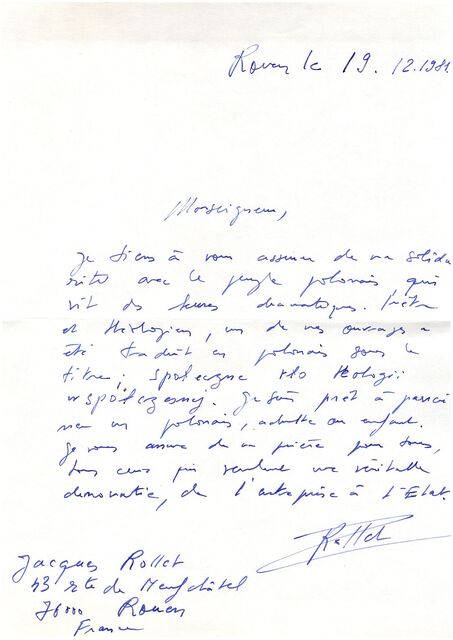 Rouen le 19.12.1981
Monseigneur,
Je tiens à vous assurer de ma solida
rité avec le peuple polonais qui
vit des heures dramatiques. Prêtre
et théologien, un de mes ouvrages a
été traduit en polonais sous le
titre; Społeczne tło teologii
współczesnej. Je suis prêt à parrai
ner un polonais, adulte ou enfant.
Je vous assure de ma prière pour tous,
tous ceux qui veulent une véritable
démocratie, de l'entreprise à l'Etat.
Rollet
Jacques Rollet
43 rte de Neufchâtel
76000 Rouen
France